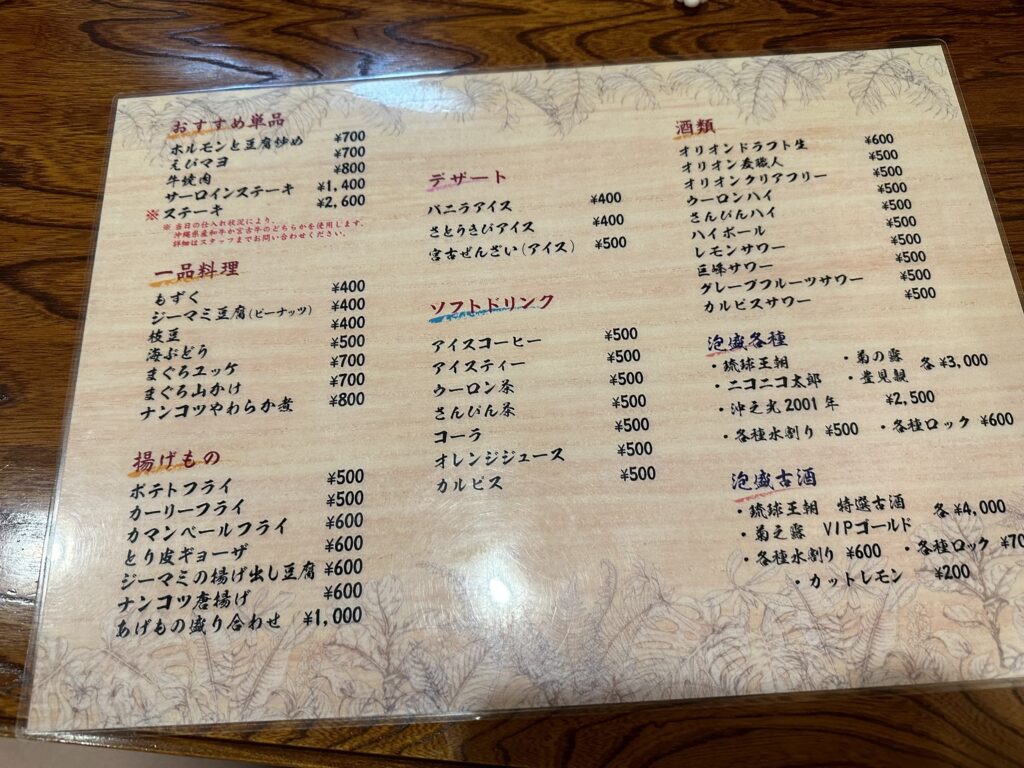 おすすめ単品
ホルモンと豆腐炒め ¥700
えびマヨ ¥700
牛焼肉 ¥800
サーロインステーキ ¥1,400
※ステーキ ¥2,600
※当日の仕入れ状況により、
沖縄県産和牛か宮古牛のどちらかを使用します。
詳細はスタッフまでお問い合わせください。
一品料理
もずく ¥400
ジーマミ豆腐(ピーナッツ) ¥400
枝豆 ¥400
海ぶどう ¥500
まぐろユッケ ¥700
まぐろ山かけ ¥700
ナンコツやわらか煮 ¥800
揚げもの
ポテトフライ ¥500
カーリーフライ ¥500
カマンベールフライ ¥600
とり皮ギョーザ ¥600
ジーマミの揚げ出し豆腐 ¥600
ナンコツ唐揚げ ¥600
あげもの盛り合わせ ¥1,000
デザート
バニラアイス ¥400
さとうきびアイス ¥400
宮古ぜんざい(アイス) ¥500
ソフトドリンク
アイスコーヒー ¥500
アイスティー ¥500
ウーロン茶 ¥500
さんぴん茶 ¥500
コーラ ¥500
オレンジジュース ¥500
カルピス ¥500
酒類
オリオンドラフト生 ¥600
オリオン麦職人 ¥500
オリオンクリアフリー ¥500
ウーロンハイ ¥500
さんぴんハイ ¥500
ハイボール ¥500
レモンサワー ¥500
巨峰サワー ¥500
グレープフルーツサワー ¥500
カルピスサワー ¥500
泡盛各種
・琉球王朝 ・菊の露 各¥3,000
・ニコニコ太郎 ・豊見親
・沖之光2001年 ¥2,500
・各種水割り ¥500 ・各種ロック ¥600
泡盛古酒
・琉球王朝 特選古酒 各¥4,000
・菊之露 VIPゴールド
・各種水割り ¥600 ・各種ロック ¥70
・カットレモン ¥200